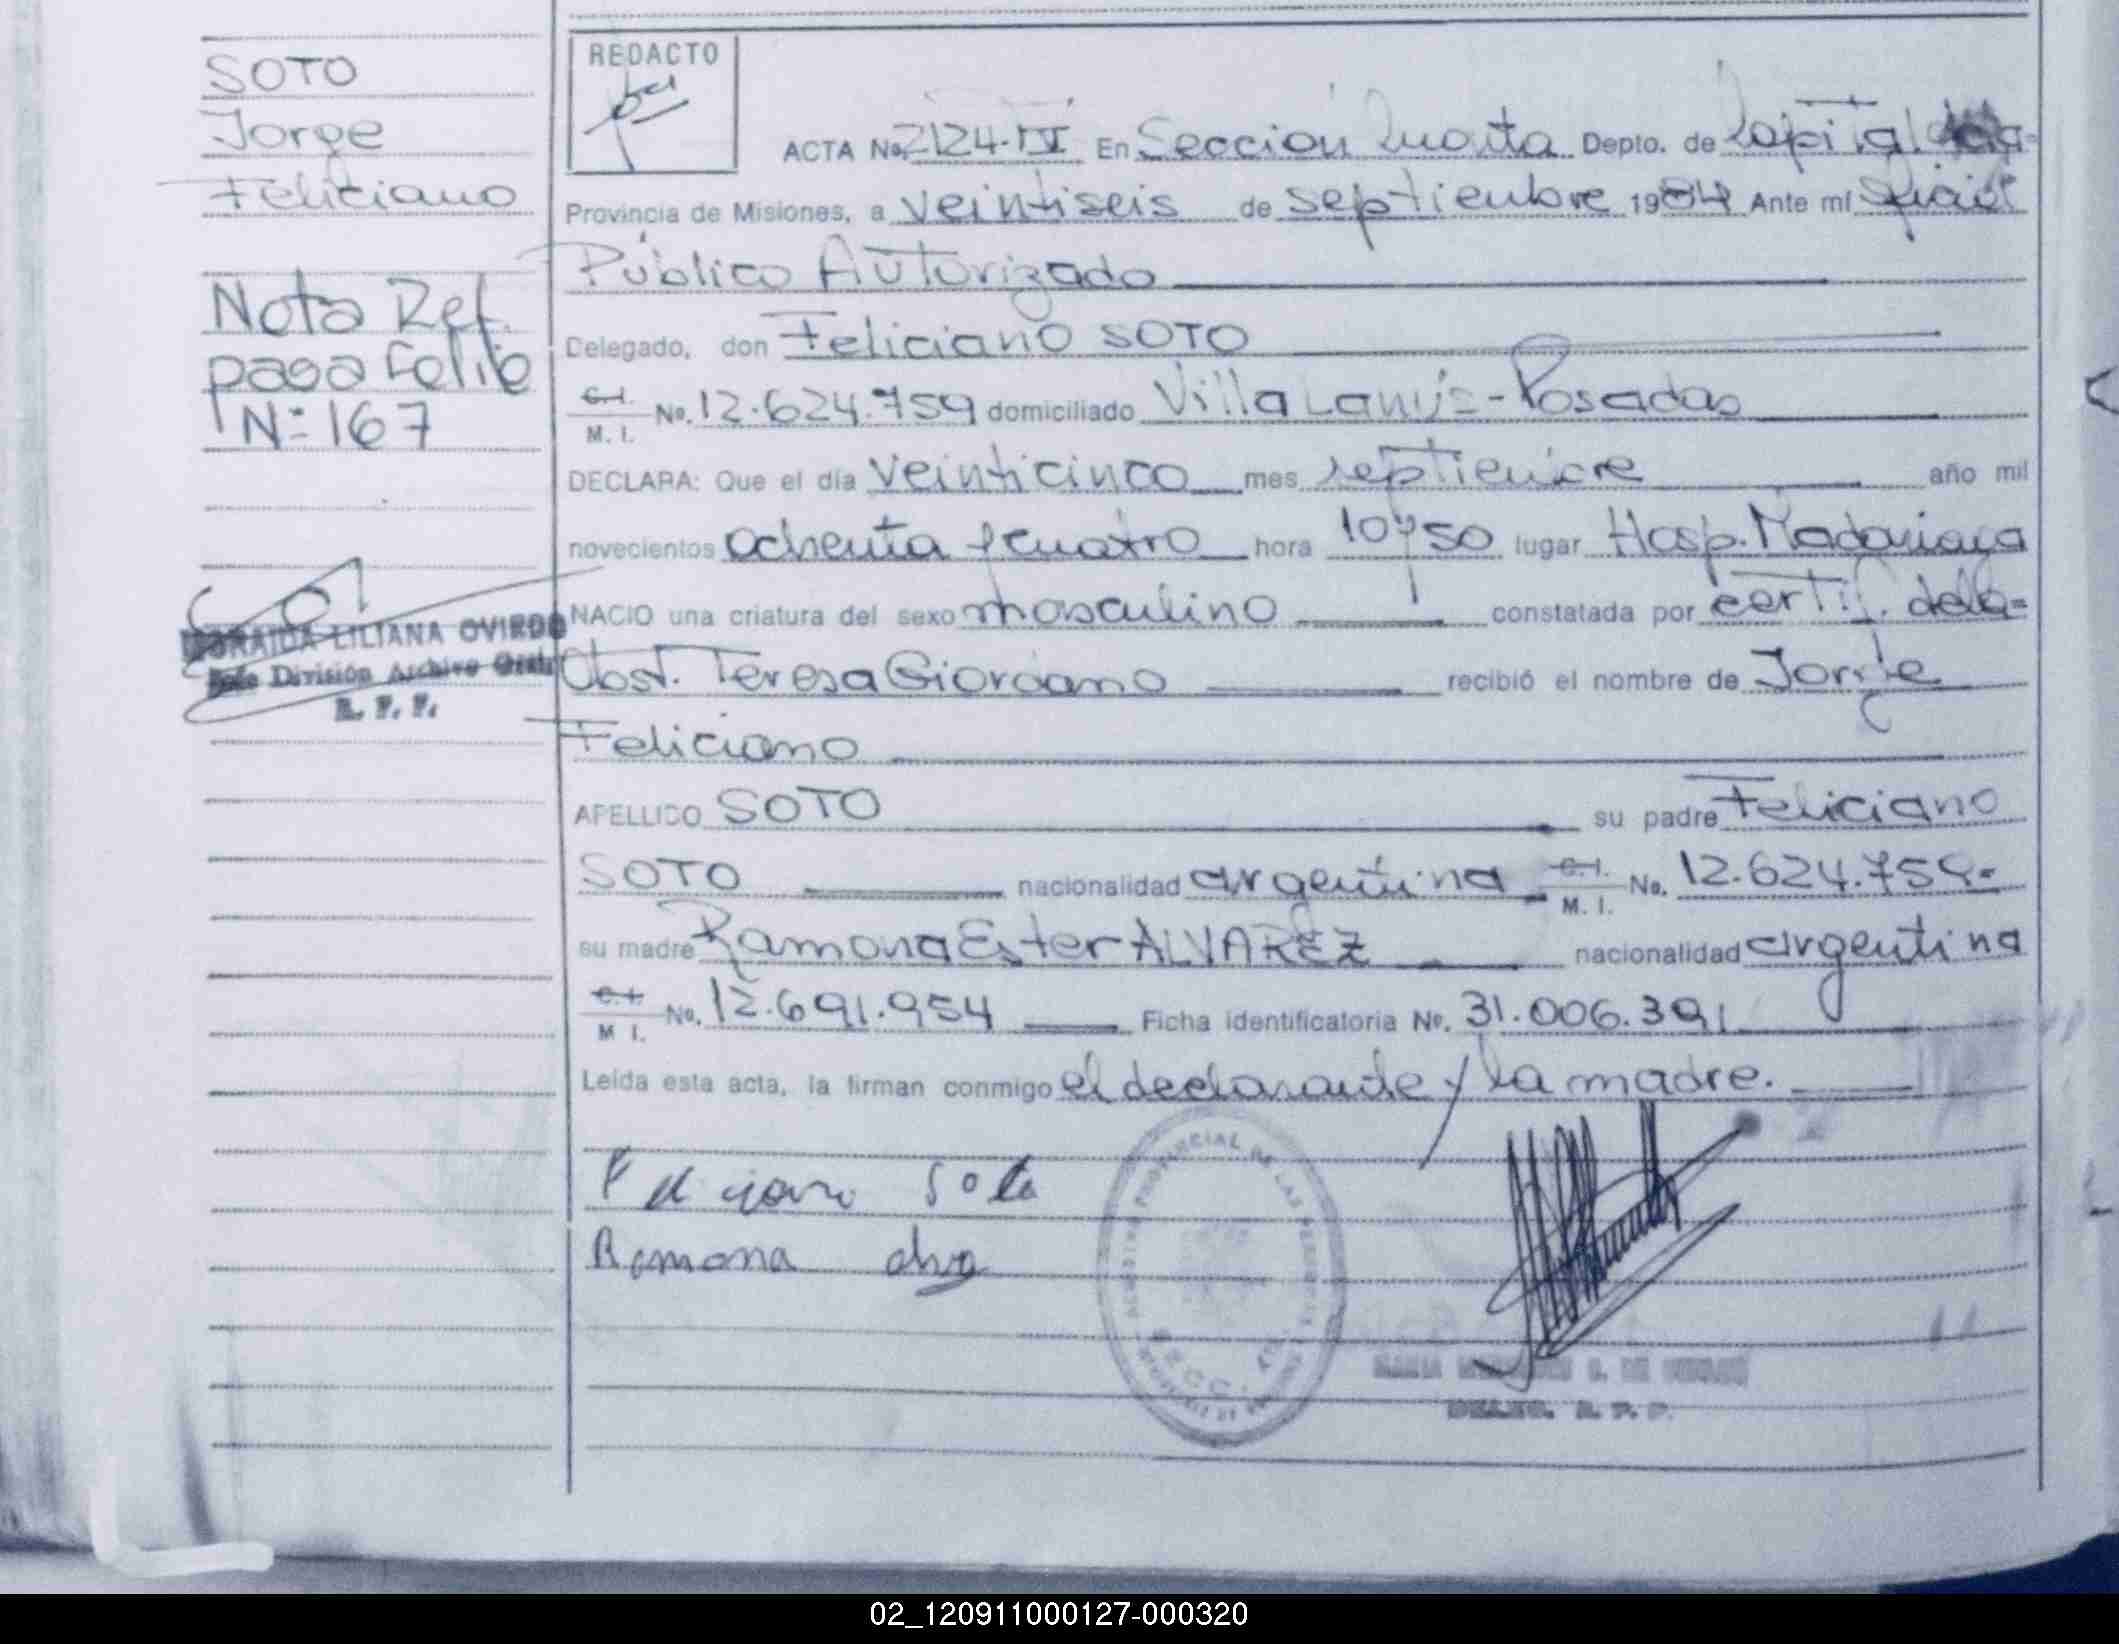 SOTO
Jorge
Feliciano
Nota Ref.
pasa Folio
Nº 167
LILIANA OVIEDO
Jefe División Archivo Gral
R. P. P.
REDACTO
ACTA No. 2124-IV En Sección Cuarta Depto. de Capital
Provincia de Misiones, a veintiseis de septiembre 1984 Ante mí Oficial
Público Autorizado
Delegado, don Feliciano SOTO
C.I. M. I. No. 12.624.759 domiciliado Villa Lanús - Posadas
DECLARA: Que el día veinticinco mes septiembre año mil
novecientos ochenta y cuatro hora 10 y 50 lugar Hosp. Madariaga
NACIO una criatura del sexo masculino constatada por certif. de la=
Obst. Teresa Giordano recibió el nombre de Jorge
Feliciano
APELLIDO SOTO su padre Feliciano
SOTO nacionalidad argentina C.I. M. I. No. 12.624.759=
su madre Ramona Ester ALVAREZ nacionalidad argentina
C.I. M I. No. 12.691.954 Ficha identificatoria No. 31.006.391
Leída esta acta, la firman conmigo el declarante y la madre.
Feliciano Soto
Ramona
REGISTRO PROVINCIAL DE LAS PERSONAS
DELEG. R. P. P.
02_120911000127-000320